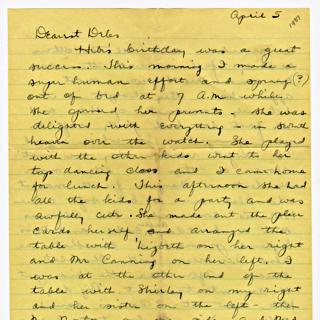 April 5
1937
Dearest Deles
Hib's birthday was a great
success. This morning I made a
super human effort and sprang (?)
out of bed at 7 A.M while
she opened her presents - she was
delighted with everything - in seventh
heaven over the watch. She played
with the other kids went to her
tap dancing class and I came home
for lunch. This afternoon she had
all the kids for a party and was
awfully cute. She made out the place
cards herself and arranged the
table with on her right
and Mr Canning on her left. I
was at the other end of the
table with Shirley on my right
and her sister on the left - then